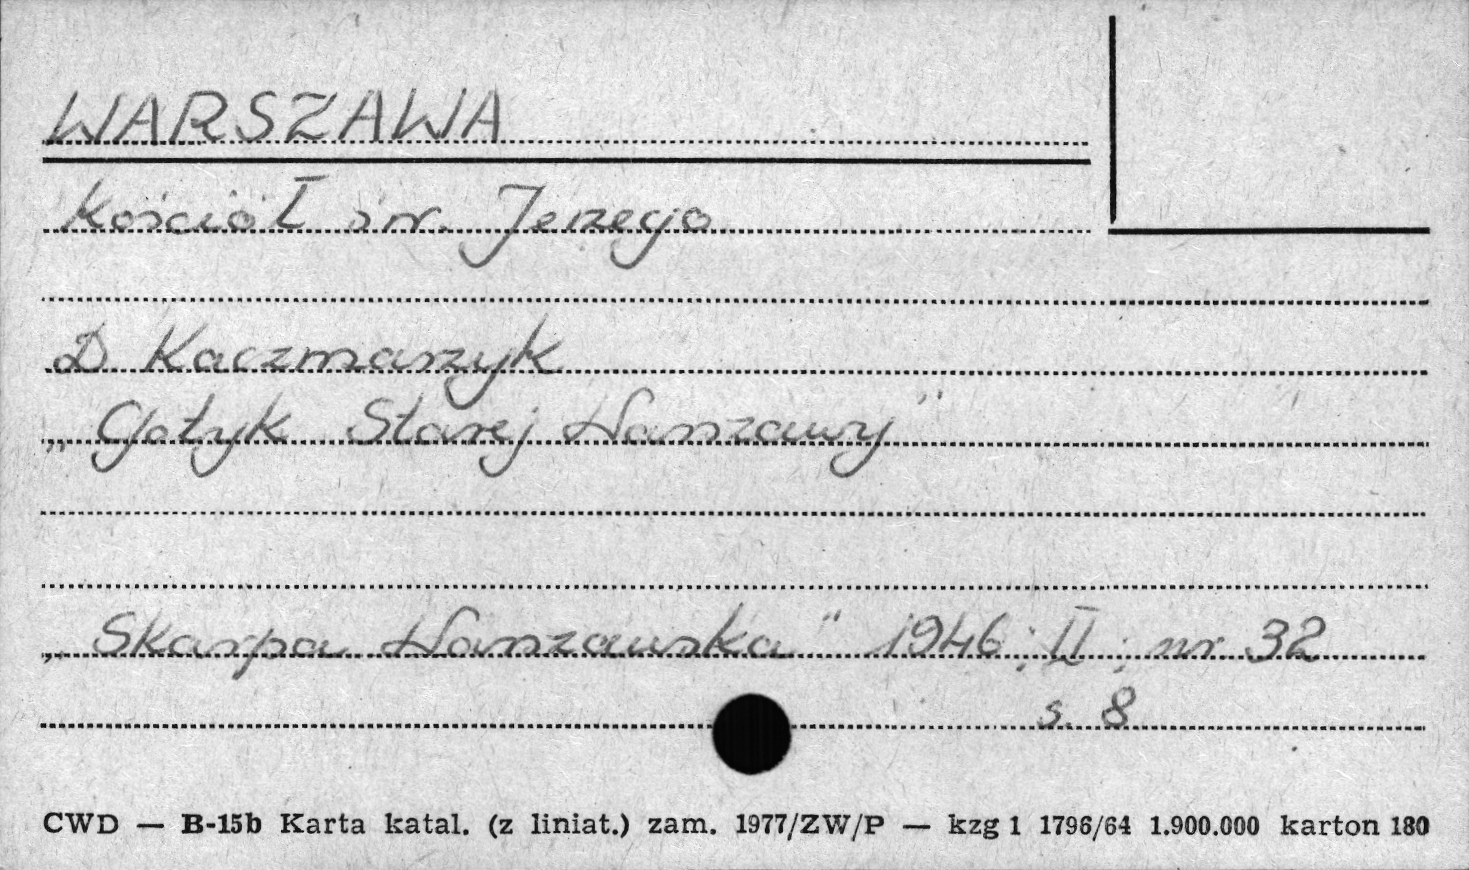 WARSZAWA
Kościół św. Jerzego
D. Kaczmarzyk
„Gotyk Starej Warszawy"
„Skarpa Warszawska" 1946; II; nr 32
s. 8
CWD — B-15b Karta katal. (z liniat.) zam. 1977/ZW/P — kzg 1 1796/64 1.900.000 karton 180